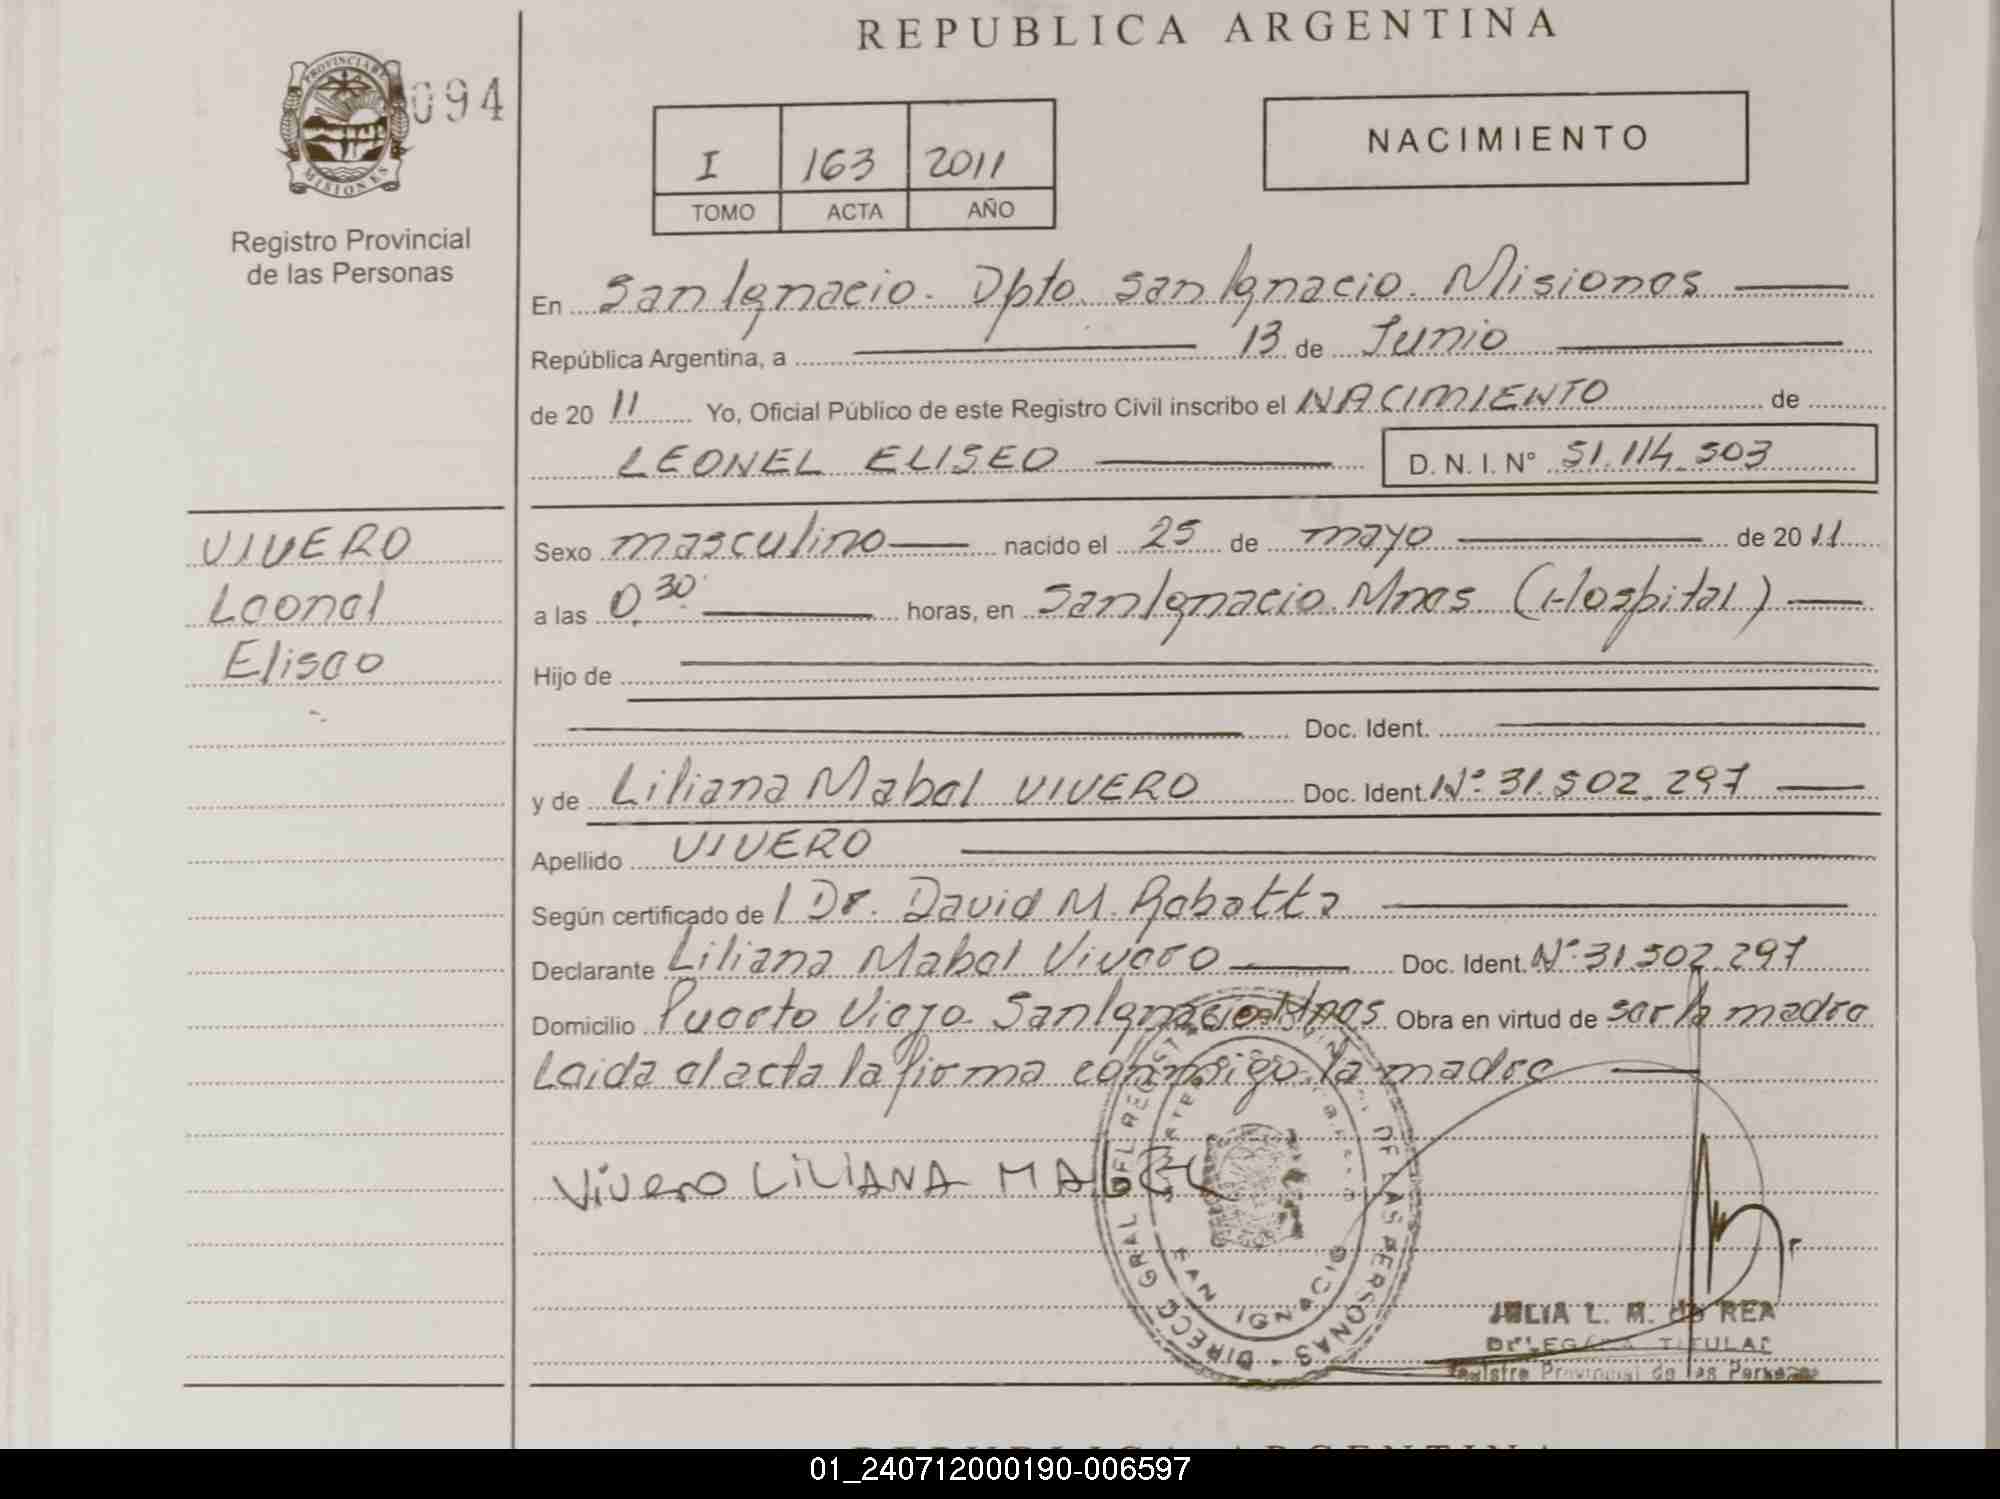 REPUBLICA ARGENTINA
PROVINCIA DE
MISIONES
094
Registro Provincial
de las Personas
I 163 2011
TOMO ACTA AÑO
NACIMIENTO
En San Ignacio. Dpto. San Ignacio. Misiones
República Argentina, a 13 de Junio
de 20 11 Yo, Oficial Público de este Registro Civil inscribo el NACIMIENTO de
LEONEL ELISEO D. N. I. N° 51.114.503
VIVERO
Leonel
Eliseo
Sexo masculino nacido el 25 de mayo de 20 11
a las 0,30 horas, en San Ignacio Mnes (Hospital)
Hijo de
Doc. Ident.
y de Liliana Mabel VIVERO Doc. Ident. N° 31.502.297
Apellido VIVERO
Según certificado de l Dr. David M. Robatta
Declarante Liliana Mabel Vivero Doc. Ident. N° 31.502.297
Domicilio Puerto Viejo San Ignacio Mnes Obra en virtud de ser la madre
Leida el acta la firma conmigo la madre
Vivero LiLIANA MABEL
DIRECC GRAL DEL REGISTRO PROVINCIAL DE LAS PERSONAS
SAN IGNACIO
JULIA L. M. de REA
DELEGADA TITULAR
Registro Provincial de las Personas
REPUBLICA ARGENTINA
01_240712000190-006597